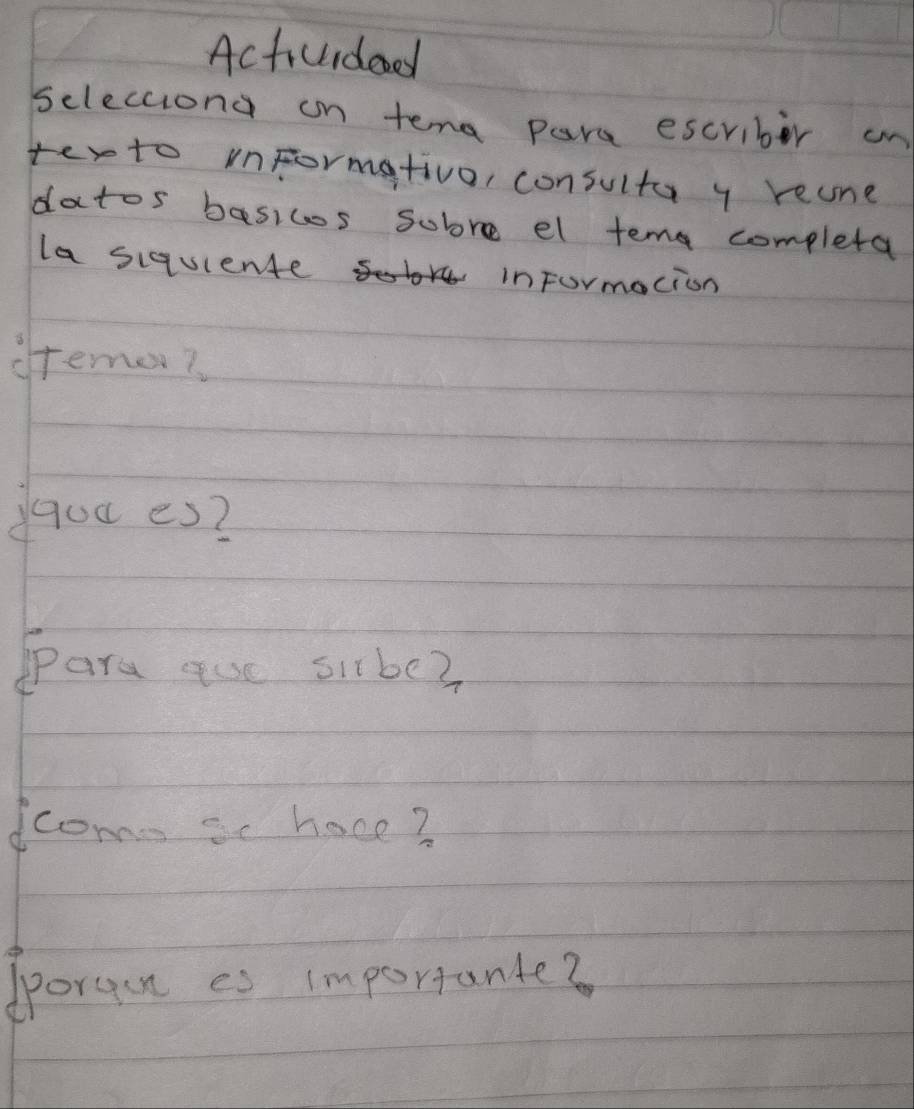 Actividad
Selecciona un tema para escribir un
texto informativo, consulta y reune
datos basicos sobre el tema completa
la siquiente informacion
¿Tema?
¿que es?
¿Para que sirbe?
¿como se hace?
¿porque es importante?